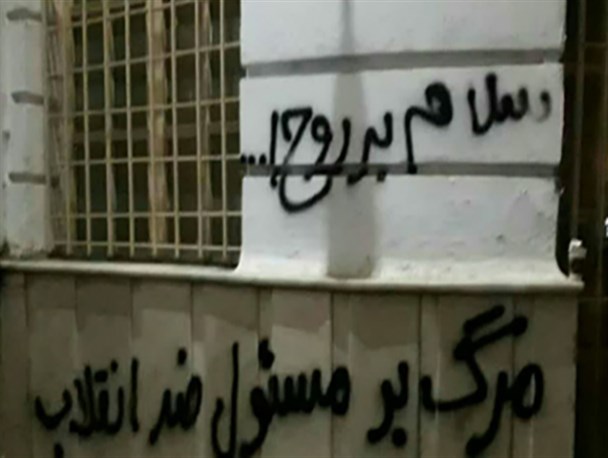 سلام بر روح ا...
مرگ بر مسئول ضد انقلاب